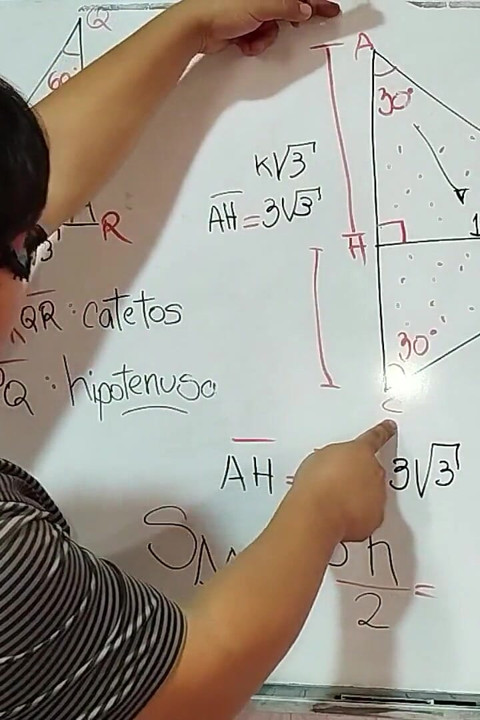 Q
60°
R
QR : catetos
Q : hipotenusa
A
30°
K√3
AH = 3√3
H
30°
C
AH = 3√3
S
h
2
=